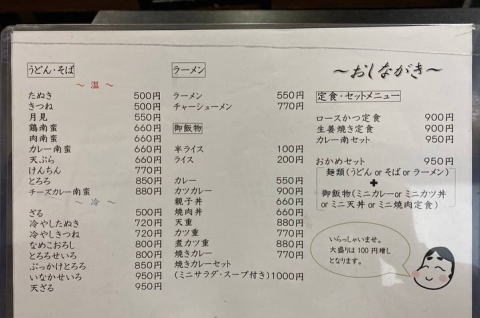 ～おしながき～
うどん・そば
～ 温 ～
たぬき 500円
きつね 500円
月見 550円
鶏南蛮 660円
肉南蛮 660円
カレー南蛮 660円
天ぷら 660円
けんちん 770円
とろろ 850円
チーズカレー南蛮 880円
～ 冷 ～
ざる 500円
冷やしたぬき 720円
冷やしきつね 720円
なめこおろし 800円
とろろせいろ 800円
ぶっかけとろろ 850円
いなかせいろ 950円
天ざる 950円
ラーメン
ラーメン 550円
チャーシューメン 770円
御飯物
半ライス 100円
ライス 200円
カレー 550円
カツカレー 900円
親子丼 660円
焼肉丼 660円
天重 880円
カツ重 770円
煮カツ重 880円
焼きカレー 770円
焼きカレーセット
(ミニサラダ・スープ付き)1000円
定食・セットメニュー
ロースかつ定食 900円
生姜焼き定食 900円
カレー南セット 950円
おかめセット 950円
麺類(うどん or そば or ラーメン)
+
御飯物(ミニカレーor ミニカツ丼
or ミニ天丼 or ミニ焼肉定食)
いらっしゃいませ。
大盛りは100円増し
となります。